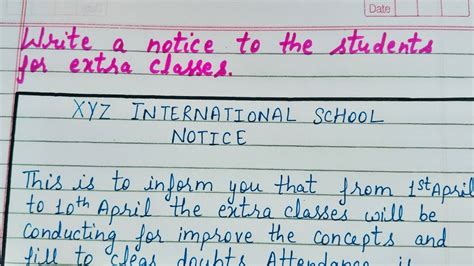 Date
Write a notice to the students
for extra classes.
XYZ INTERNATIONAL SCHOOL
NOTICE
This is to inform you that from 1st April
to 10th April the extra classes will be
conducting for improve the concepts and
fill to clear doubts Attendance is